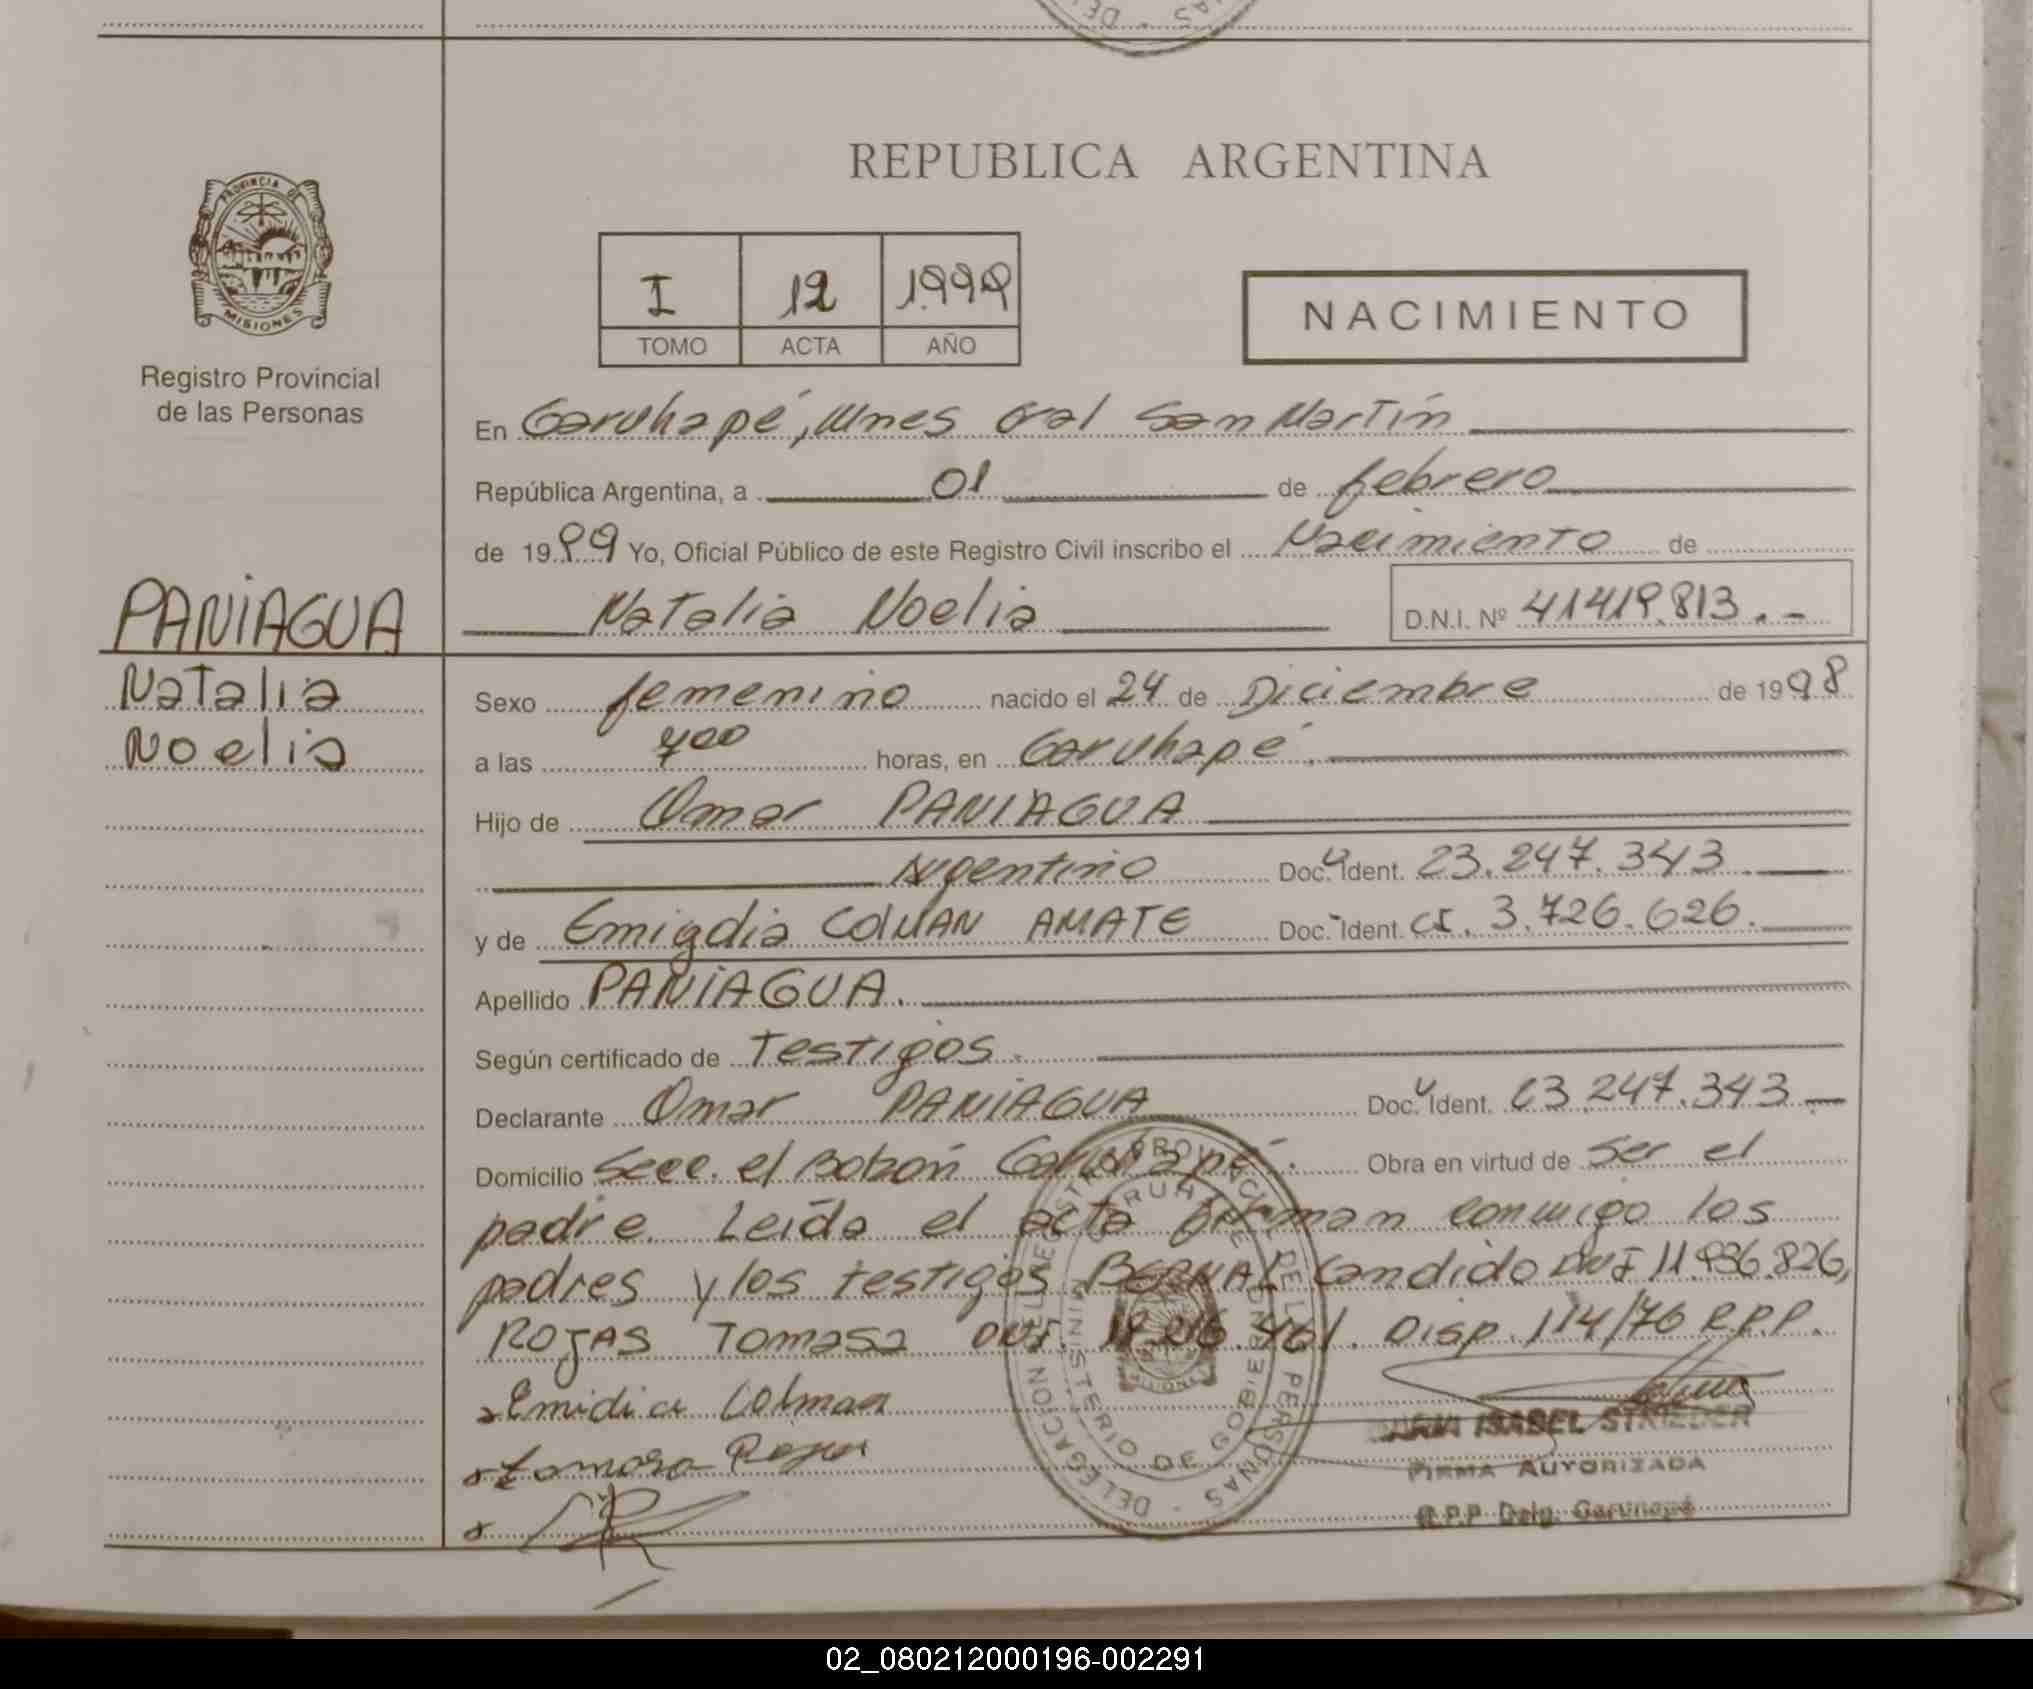 REPUBLICA ARGENTINA
PROVINCIA DE
MISIONES
Registro Provincial
de las Personas
I 12 1.999
TOMO ACTA AÑO
NACIMIENTO
En Garuhapé, Mnes Gral San Martín
República Argentina, a 01 de febrero
de 1999 Yo, Oficial Público de este Registro Civil inscribo el Nacimiento de
Natalia Noelia D.N.I. Nº 41419.813.-
PANIAGUA
Natalia
Noelia
Sexo femenino nacido el 24 de Diciembre de 1998
a las 700 horas, en Garuhapé.
Hijo de Omar PANIAGUA
Argentino Doc. Ident. 23.247.343
y de Emigdia COLMAN AMATE Doc. Ident. CI. 3.726.626.
Apellido PANIAGUA.
Según certificado de Testigos.
Declarante Omar PANIAGUA Doc. Ident. 23.247.343
Domicilio Secc. el Garuhapé. Obra en virtud de ser el
padre. Leída el acta firman conmigo los
padres y los testigos BERNAL Candido DNI 11.936.826,
ROJAS Tomasa DNI. Disp. 114/76 R.P.P.
Emidia Colman
Rojas
ISABEL STRIEDER
FIRMA AUTORIZADA
R.P.P Delg. Garuhapé
02_080212000196-002291